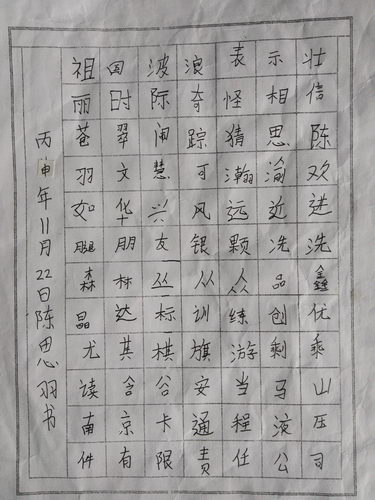 祖国波浪表示壮
丽时际奇怪相信
苍翠闹踪猜思陈
羽文慧可瀚渝欢
如华兴风远近进
腿朋友银颗冼洗
森林丛从众品鑫
晶达标训练创优
尤其棋旗游剩乘
读含谷安当马山
南京卡通程液压
件有限责任公司
丙申年11月22日陈思羽书